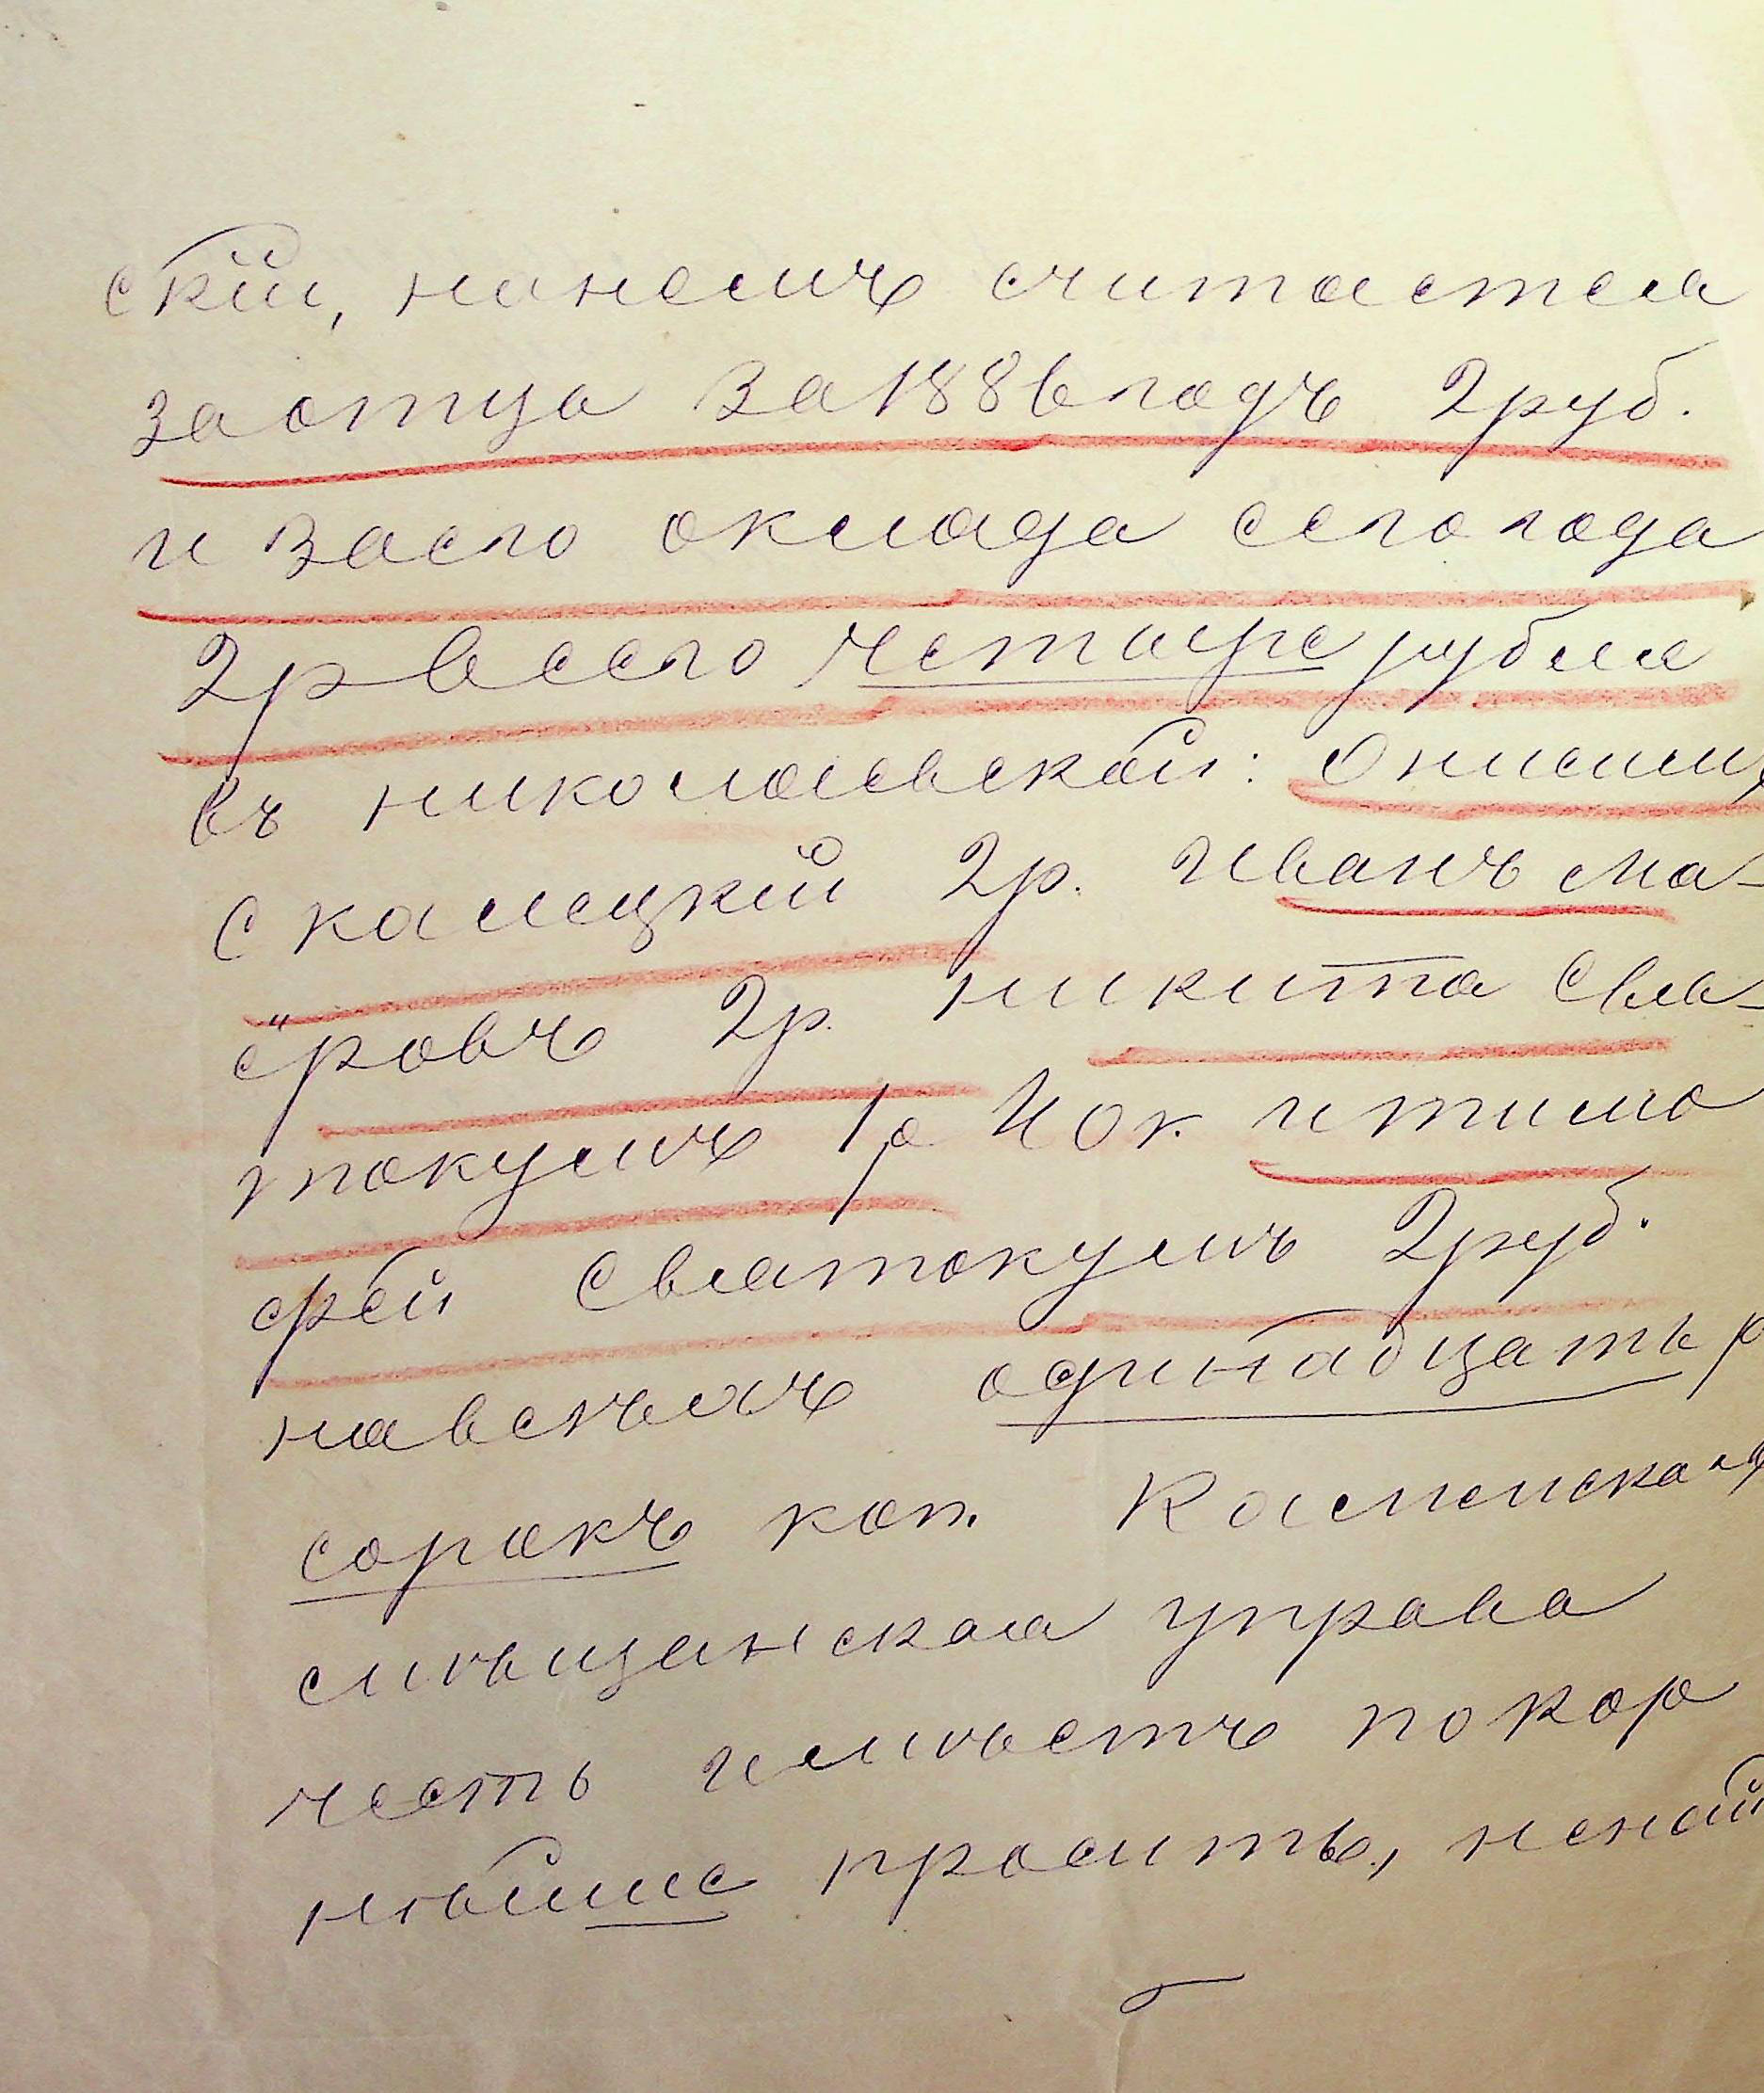 скій, нанемъ считается
за отца за 1886 годъ 2 руб.
и засего оклада сего года
2 р всего четыре рубля
въ николаевской: Онисим
Скалецкій 2 р. Иванъ Ма-
ёровъ 2 р. Никита Свя-
токумъ 1 р 40 к. и тимо
фей Святокумъ 2 руб.
на всѣмъ одинадцать р
сорокъ коп. Каменская
мѣщанская управа
честь имѣетъ покор
нѣйше просить, ненай